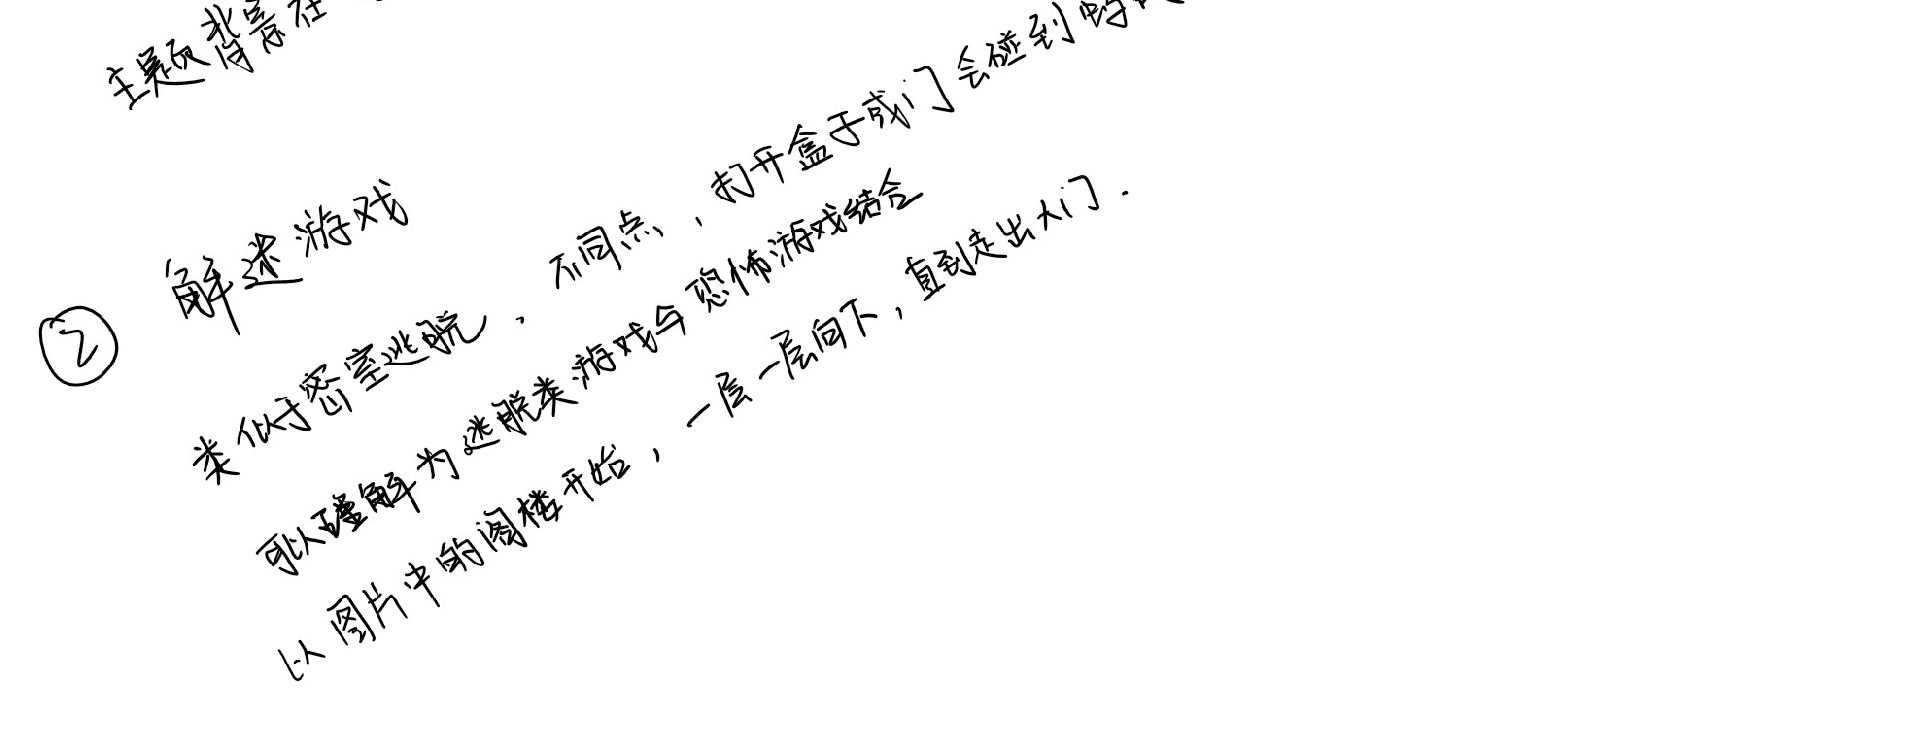 主题背景在
② 解迷游戏
类似于密室逃脱，不同点，打开盒子或门会碰到
可以理解为逃脱类游戏与恐怖游戏结合
以图片中的阁楼开始，一层一层向下，直到走出大门.